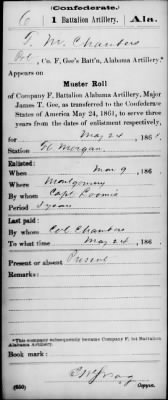 (Confederate.)
6 1 Battalion Artillery. Ala.
T. M. Chambers
Pvt, Co. F, Gee's Batt'n, Alabama Artillery.*
Appears on
Muster Roll
of Company F, Battalion Alabama Artillery, Major
James T. Gee, as transferred to the Confederate
States of America May 24, 1861, to serve three
years from the dates of enlistment respectively,
for May 24, 186
Station Ft. Morgan.
Enlisted:
When Mar 9, 186
Where Montgomery
By whom Capt. Loomis
Period 3 years
Last paid:
By whom Col. Chambers
To what time May 24, 186
Present or absent Present
Remarks:
*This company subsequently became Company F, 1st Battalion
Alabama Artillery.
Book mark:
(650) Copyist.